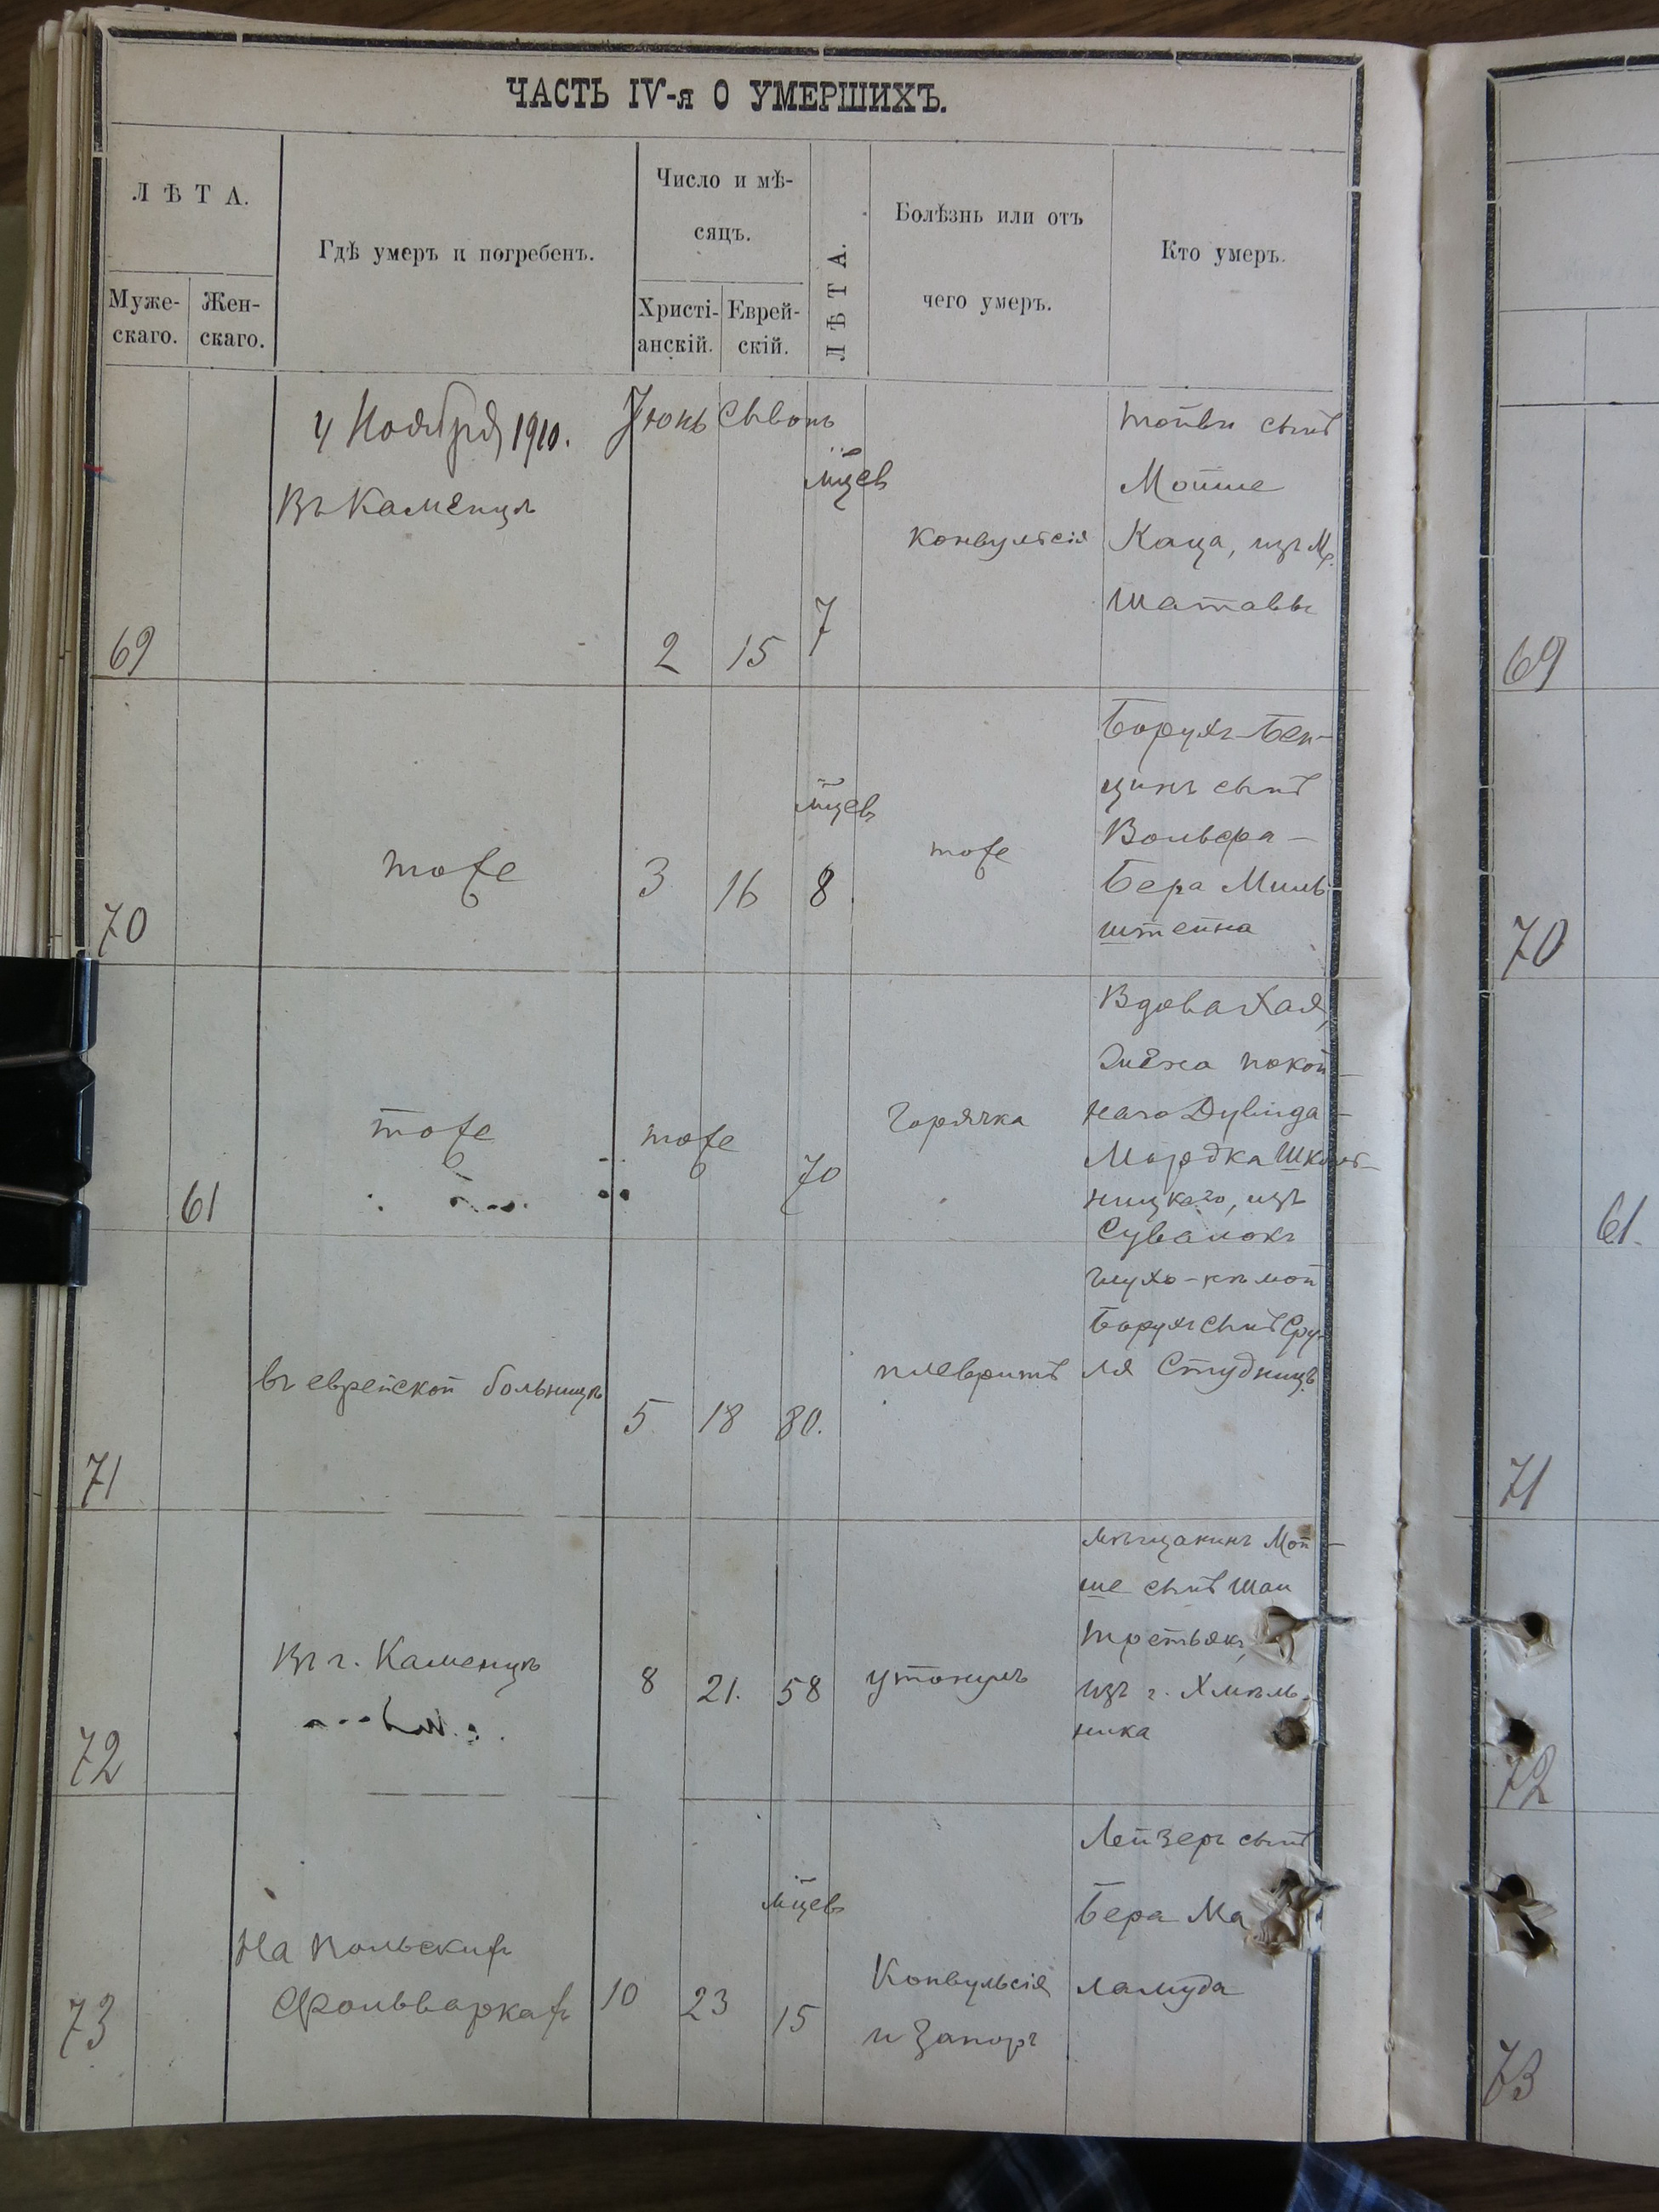 ЧАСТЬ IV-я О УМЕРШИХЪ.
ЛѢТА.
Муже-
скаго.
Жен-
скаго.
Гдѣ умеръ и погребенъ.
Число и мѣ-
сяцъ.
Христі-
анскій.
Еврей-
скій.
ЛѢТА.
Болѣзнь или отъ
чего умеръ.
Кто умеръ.
4 Ноября 1910.
Іюнь
Сывонъ
69
Въ Каменцѣ
2
15
мцев
7
конвульсія
Тойви сынъ
Мойше
Каца, изъ М.
Шатавы
69
70
тоже
3
16
мцев
8
тоже
Борухъ-Бен-
ционъ сынъ
Вольфа-
Бера Миль
штейна
70
61
тоже
тоже
70
Горячка
Вдова Хая,
жена покой-
наго
Мордка Школь-
ницкаго, изъ
Сувалокъ
61.
71
въ еврейской больницѣ
5
18
80.
плевритъ
глухо-нѣмой
Борухъ сынъ Сру-
ля Студниц.
71
72
Въ г. Каменцѣ
8
21.
58
утонулъ
мѣщанинъ Мой-
ше сынъ Шаи
Третьякъ,
изъ г. Хмѣль-
ника
72
73
На Польскихъ
Фольваркахъ
10
23
мцев
15
Конвульсія
и Запоръ
Лейзеръ сынъ
Бера Ма
ламуда
73